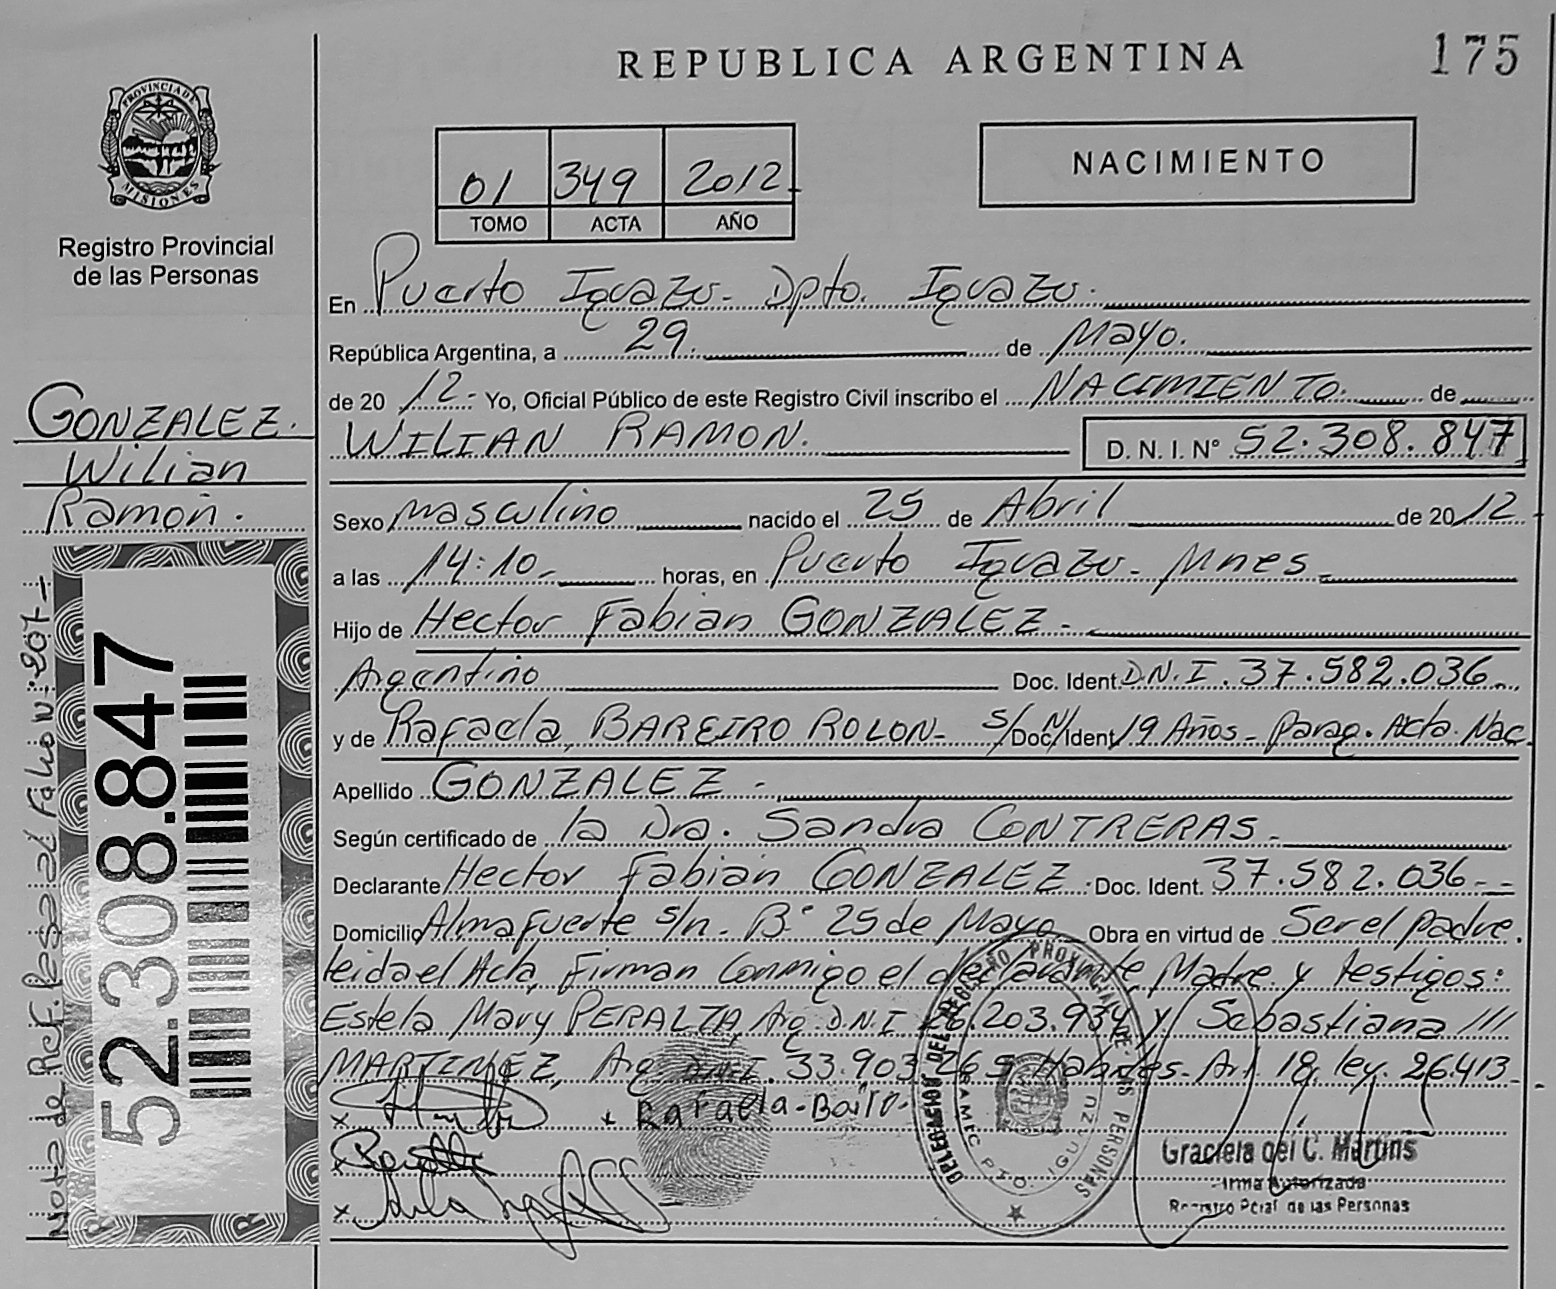 REPUBLICA ARGENTINA
175
PROVINCIA DE
MISIONES
Registro Provincial
de las Personas
01 349 2012
TOMO ACTA AÑO
NACIMIENTO
En Puerto Iguazu- Dpto. Iguazu.
República Argentina, a 29. de Mayo.
de 20 12- Yo, Oficial Público de este Registro Civil inscribo el NACIMIENTO. de
WILIAN RAMON. D. N. I. N° 52.308.847
Sexo masculino nacido el 25 de Abril de 20 12
a las 14:10- horas, en Puerto Iguazu- Mnes-
Hijo de Hector Fabian GONZALEZ-
Argentino Doc. Ident. D.N.I. 37.582.036-
y de Rafaela, BAREIRO ROLON- S/N/ Doc. Ident. 19 Años- Parag. Acta. Nac.
Apellido GONZALEZ-
Según certificado de la Dra. Sandra CONTRERAS-
Declarante Hector Fabian GONZALEZ- Doc. Ident. 37.582.036--
Domicilio Almafuerte s/n. B° 25 de Mayo Obra en virtud de Ser el padre.
leida el Acta, Firman Conmigo el declarante, Madre y testigos:
Estela Mary PERALTA, Arg. D.N.I. 26.203.934 y Sebastiana ///
MARTINEZ, Arg. D.N.I. 33.903.265 Art 18, ley. 26.413-
x
x Rafaela-
x
x
DELEGACION DEL REGISTRO PROVINCIAL DE LAS PERSONAS
IGUAZU
Graciela del C. Martins
Firma Autorizada
Registro Pcial de las Personas
GONZALEZ.
Wilian
Ramon.
52.308.847
Nota de Ref. Folio N: 207-